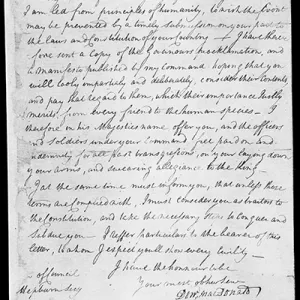 I am led from principles of humanity, to wish the Event
may be prevented by a timely submission on your part to
the laws and constitution of your Country - I have there-
fore sent a Copy of the Governours proclamation, and
a Manifesto published by my command hoping that you
will cooly impartially and deliberately consider their Contents
and pay that regard to them, which their importance
merits from every friend to the human species - I
therefore in his Majestys name offer you, and the officers
and Soldiers under your Command free pardon and
indemnity for all past transgressions, on your laying down
your arms, and swearing allegiance to the King -
I at the same time must inform you, that unless these
terms are complied with, I must consider you as traitors to
the Constitution, and take the necessary steps to conquer and
subdue you - I refer particulars to the bearer of this
letter, to whom I expect you'll show every civility -
I have the honor to be
Your most obed. Serv.
Don. MacDonald
Hepburn Secy